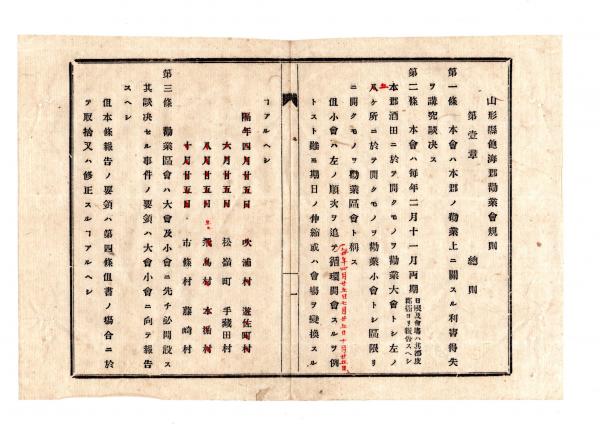 山形縣飽海郡勸業會規則
第壹章 總則
第一條 本會ハ本郡ノ勸業上ニ關スル利害得失
ヲ講究談决ス
第二條 本會ハ毎年二月十一月兩期 日限及會塲ハ其都度郡衙ヨリ報告スヘシ
本郡酒田ニ於ヲ開クモノヲ勸業大會トシ左ノ
五
八ケ所ニ於ヲ開クモノヲ勸業小會トシ區限リ
ニ開クモノヲ勸業區會ト稱ス
但小會ハ左ノ順次ヲ追ヲ循環開會スルヲ例
トスト雖モ期日ノ伸縮或ハ會塲ヲ變換スル
ヿアルヘシ
隔年四月廿五日 吹浦村 遊佐町村
六月廿五日 松嶺町 手藏田村
八月廿五日 飛鳥村 本楯村
十月廿五日 市條村 藤崎村
第三條 勸業區會ハ大會及小會ニ先チ必開設ス
其談决セル事件ノ要領ハ大會小會ニ向テ報告
スヘシ
但本條報告ノ要領ハ第四條但書ノ塲合ニ於
ヲ取捨又ハ修正スルヿアルヘシ
一